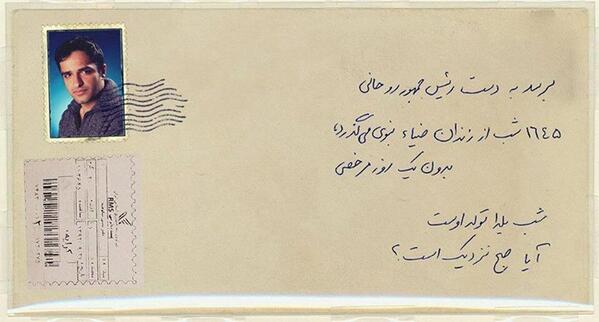 برسد به دست رئیس جمهور روحانی
۱۶۴۵ شب از زندان ضیاء نبوی می‌گذرد؛
بدون یک روز مرخصی
شب یلدا تولد اوست
آیا صبح نزدیک است؟
RMS